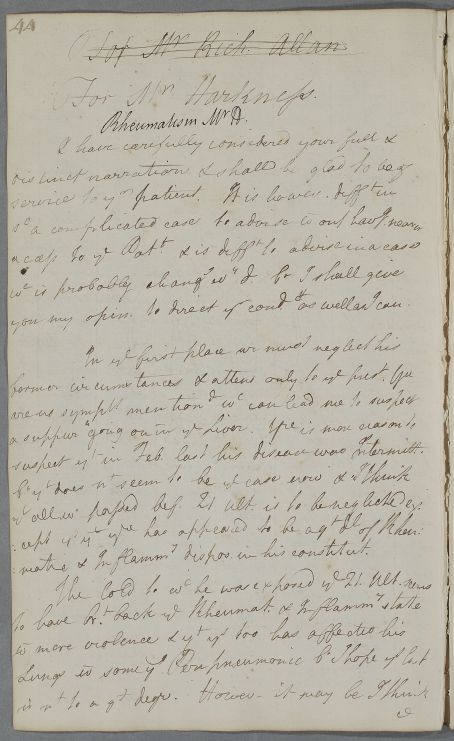 44
For Mr Rich. Allan.
For Mr Harkness.
Rheumatism Mr H.
I have carefully considered your full &
distinct narration & shall be glad to be of
service to yr patient. It is howevr. difft in
a complicated case to advise witht havg near
access to ye Patt & is difft to advise in a case
wc is probably changg bt I shall give
you my opin. to direct yr condt as well as I can
In ye first place we must neglect his
former circumstances & attend only to ye prest. Yre
are no sympts mentiond wc can lead me to suspect
a suppurn going on in ye Liver. Yre is more reason to
suspect yt in Feb. last his disease was Intermitt.
bt yt does nt seem to be ye case now & I think
yt all wc passed bef. 21 ult. is to be neglected ex:
:cept yt yre has appeared to be a gt dl of Rheu:
:matic & Inflammy dispos. in his constitut.
The Cold to wc he was exposed ye 21. ult. seems
to have bt back ye Rheumat. & Inflammy state
wt more violence & yt ys too has affected his
Lungs wt some Peripneumonic bt I hope ys last
is nt to a gt degr. Howevr. it may be I think